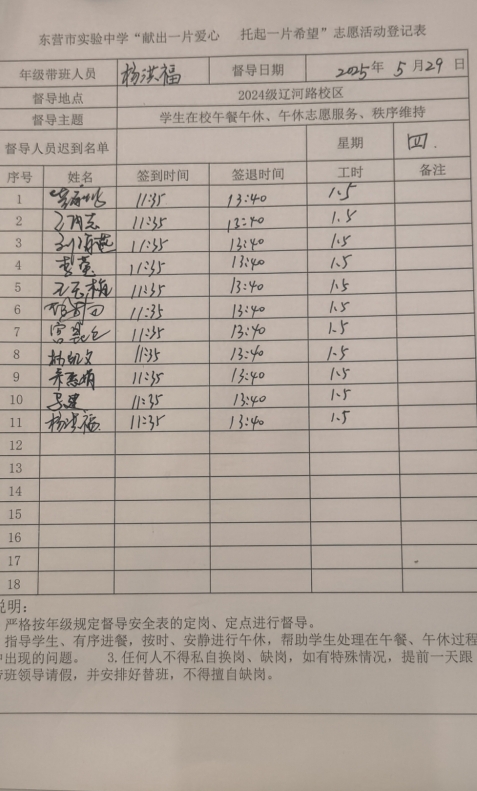 东营市实验中学“献出一片爱心 托起一片希望”志愿活动登记表
年级带班人员 杨洪福 督导日期 2025年 5月29日
督导地点 2024级辽河路校区
督导主题 学生在校午餐午休、午休志愿服务、秩序维持
督导人员迟到名单 星期 四.
序号 姓名 签到时间 签退时间 工时 备注
1 11:35 13:40 1.5
2 11:35 13:40 1.5
3 11:35 13:40 1.5
4 11:35 13:40 1.5
5 11:35 13:40 1.5
6 11:35 13:40 1.5
7 11:35 13:40 1.5
8 11:35 13:40 1.5
9 11:35 13:40 1.5
10 11:35 13:40 1.5
11 杨洪福 11:35 13:40 1.5
12
13
14
15
16
17
18
说明:
严格按年级规定督导安全表的定岗、定点进行督导。
指导学生、有序进餐，按时、安静进行午休，帮助学生处理在午餐、午休过程
中出现的问题。 3.任何人不得私自换岗、缺岗，如有特殊情况，提前一天跟
带班领导请假，并安排好替班，不得擅自缺岗。